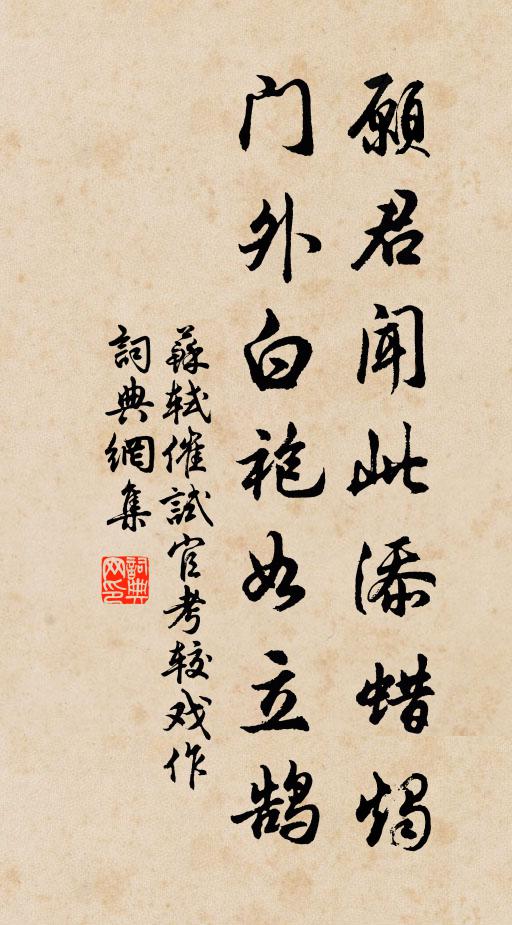 願君闻此添蜡燭
门外白袍如立鹄
蘇轼催試官考较戏作
詞典網集
詞典网印